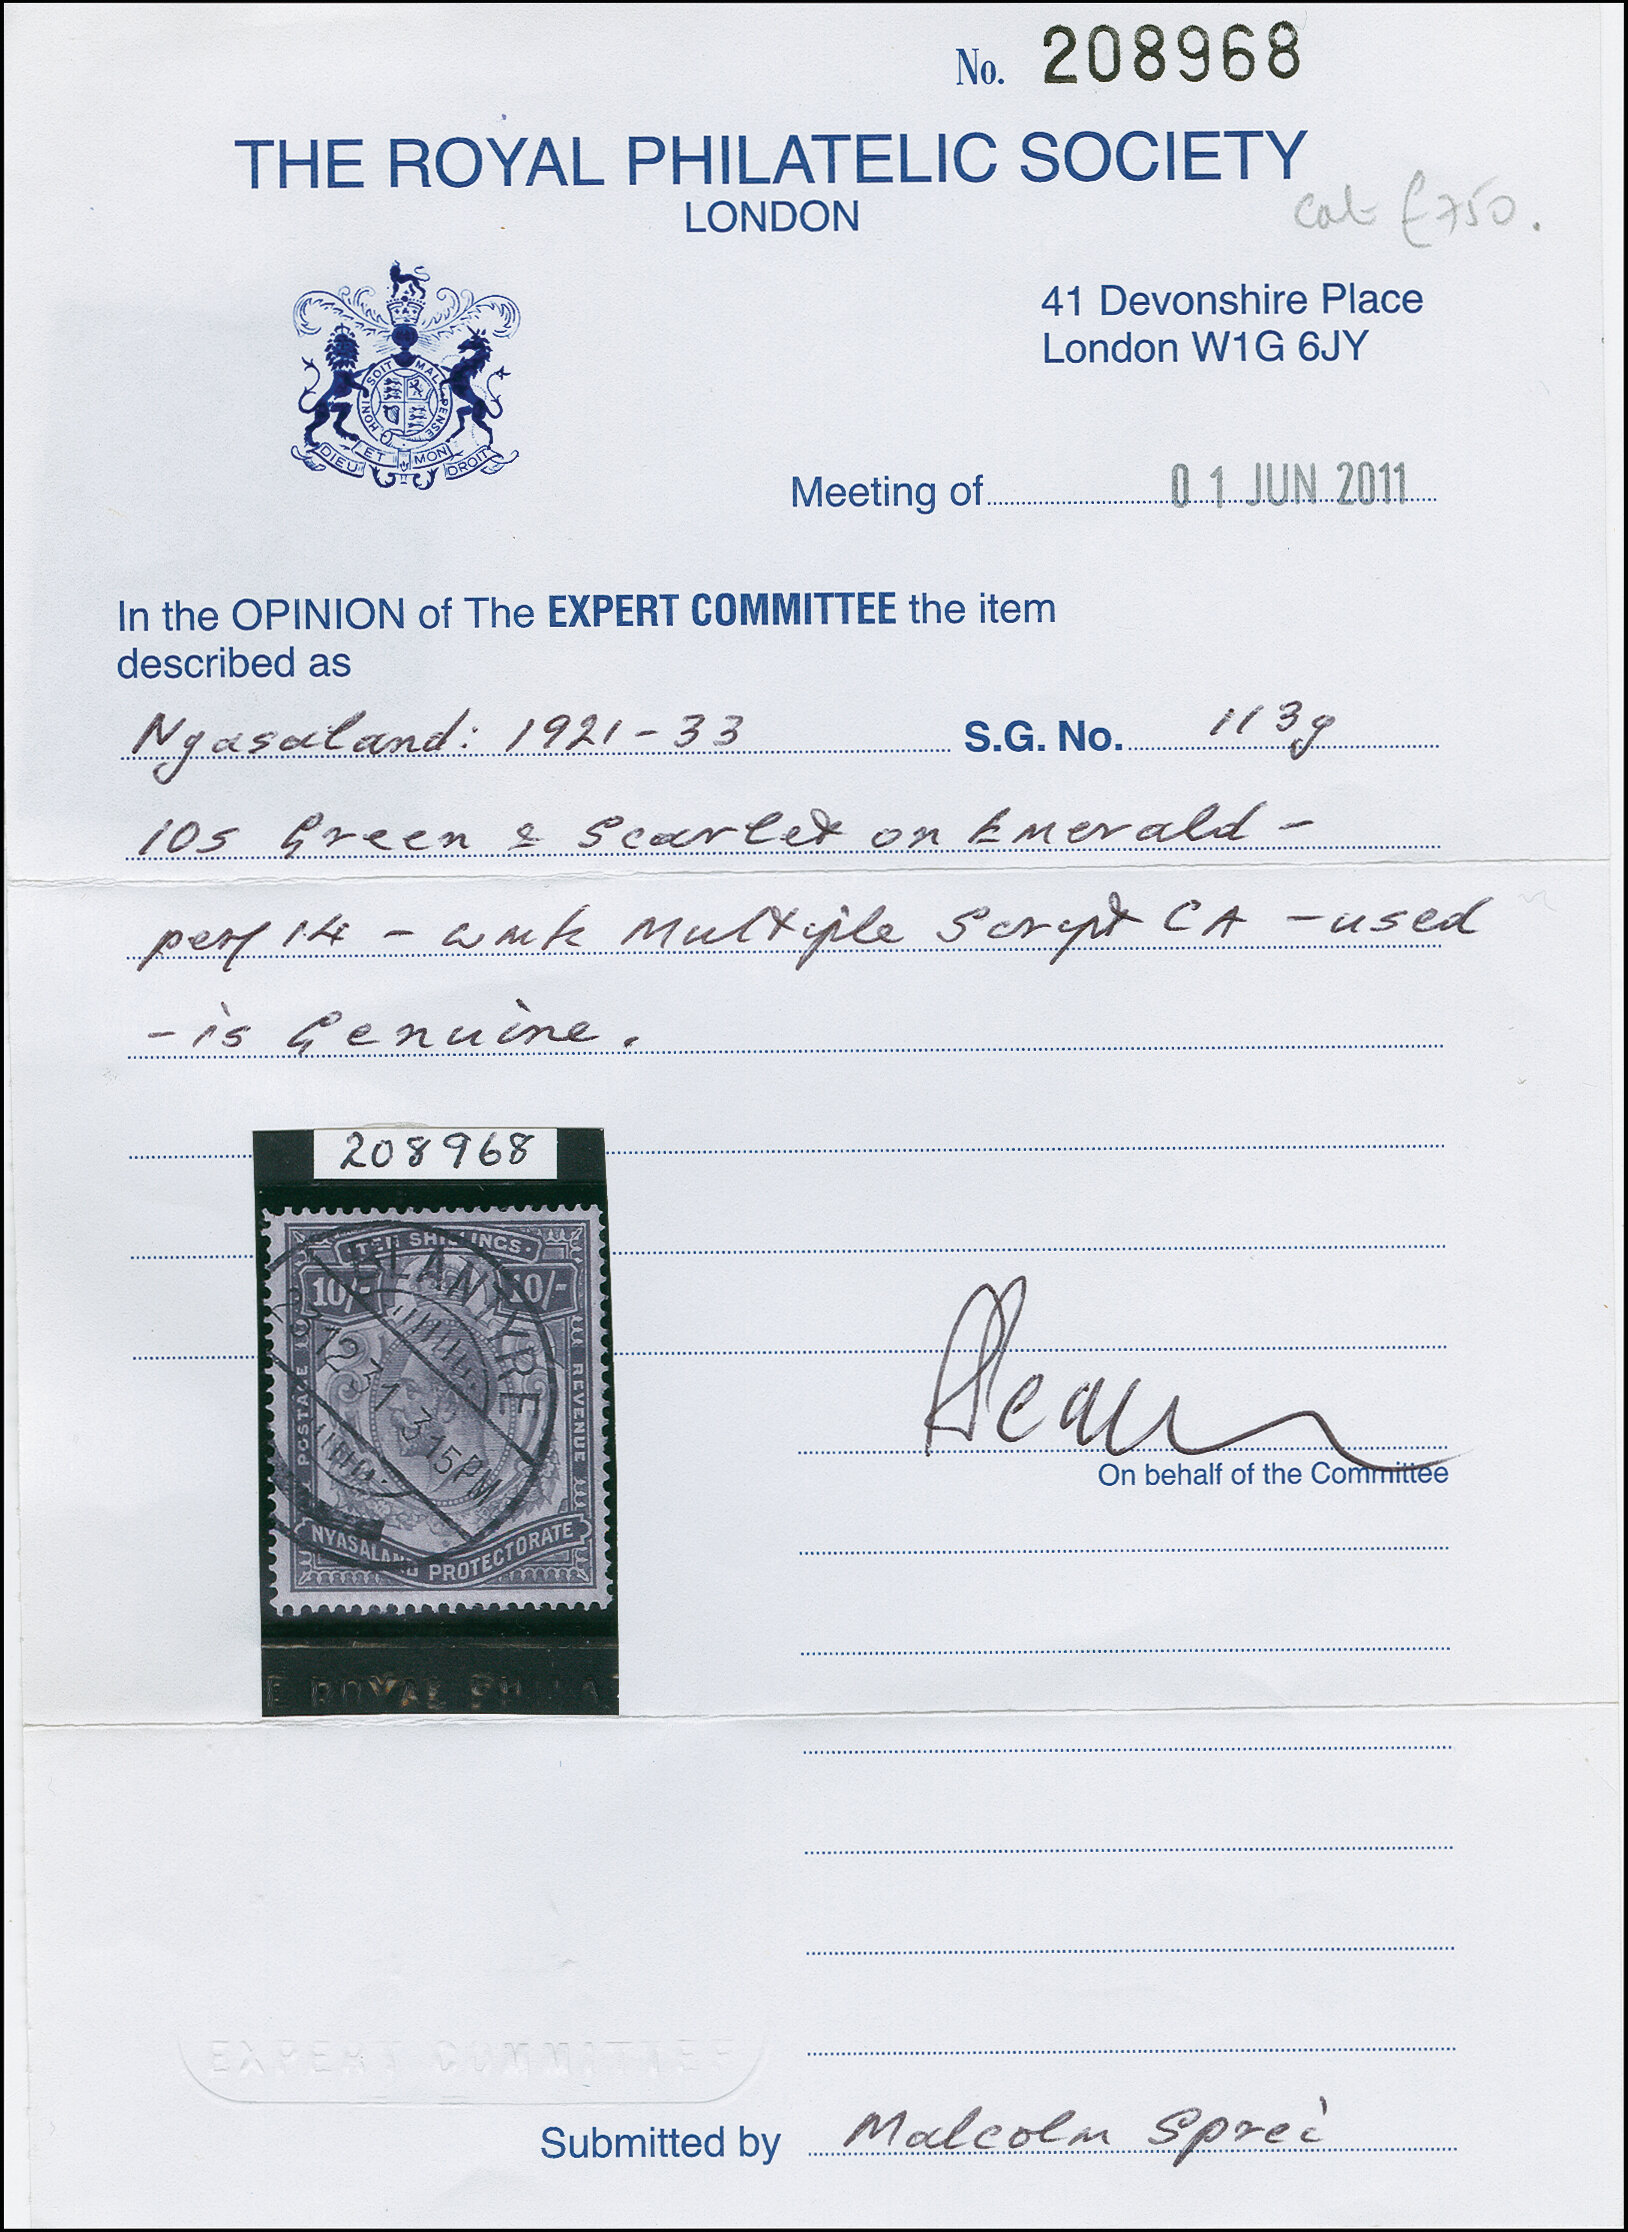 No. 208968
THE ROYAL PHILATELIC SOCIETY
LONDON
cat £750.
41 Devonshire Place
London W1G 6JY
HONI SOIT MAL PENSE
DIEU ET MON DROIT
Meeting of 01 JUN 2011
In the OPINION of The EXPERT COMMITTEE the item
described as
Nyasaland: 1921-33 S.G. No. 113g
10s Green & Scarlet on Emerald -
perf 14 - wmk Multiple Script CA - used
- is Genuine.
208968
TEN SHILLINGS
10/- 10/-
BLANTYRE
12 31 3 15PM
POSTAGE REVENUE
NYASALAND PROTECTORATE
E ROYAL PHILA
On behalf of the Committee
EXPERT COMMITTEE
Submitted by Malcolm Sprei